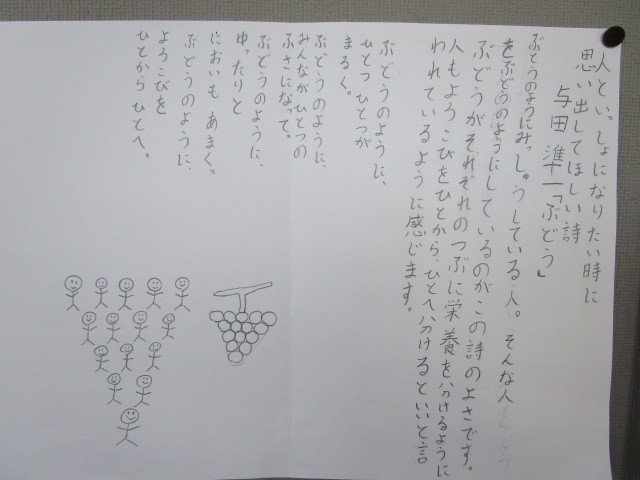 人といっしょになりたい時に
思い出してほしい詩
与田 準一「ぶどう」
ぶどうのようにみっしゅうしている人。そんな人
をぶどうのようにしているのがこの詩のよさです。
ぶどうがそれぞれのつぶに栄養を分けるように
人もよろこびをひとから、ひとへ、分けるといいと言
われているように感じます。
ぶどうのように、
ひとつひとつが
まるく。
ぶどうのように、
みんながひとつの
ふさになって。
ぶどうのように、
ゆったりと
においも あまく。
ぶどうのように、
よろこびを
ひとから ひとへ。